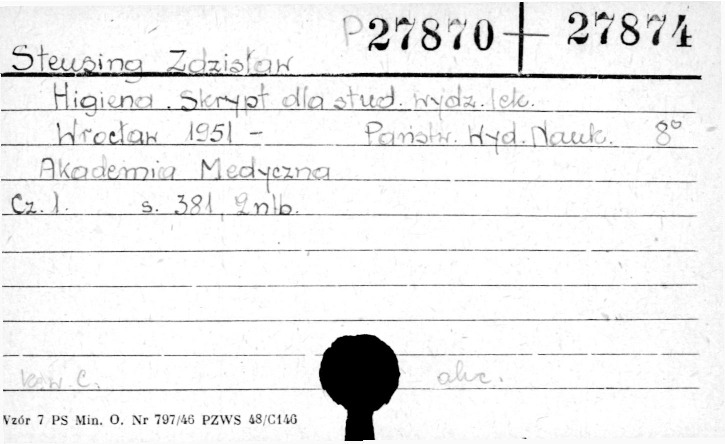 P 27870 + 27874
Steusing Zdzisław
Higiena. Skrypt dla stud. wydz. lek.
Wrocław 1951 - Państw. Wyd. Nauk. 8°
Akademia Medyczna
Cz. 1. s. 381, 2 nlb.
akc.
Vzór 7 PS Min. O. Nr 797/46 PZWS 48/C146